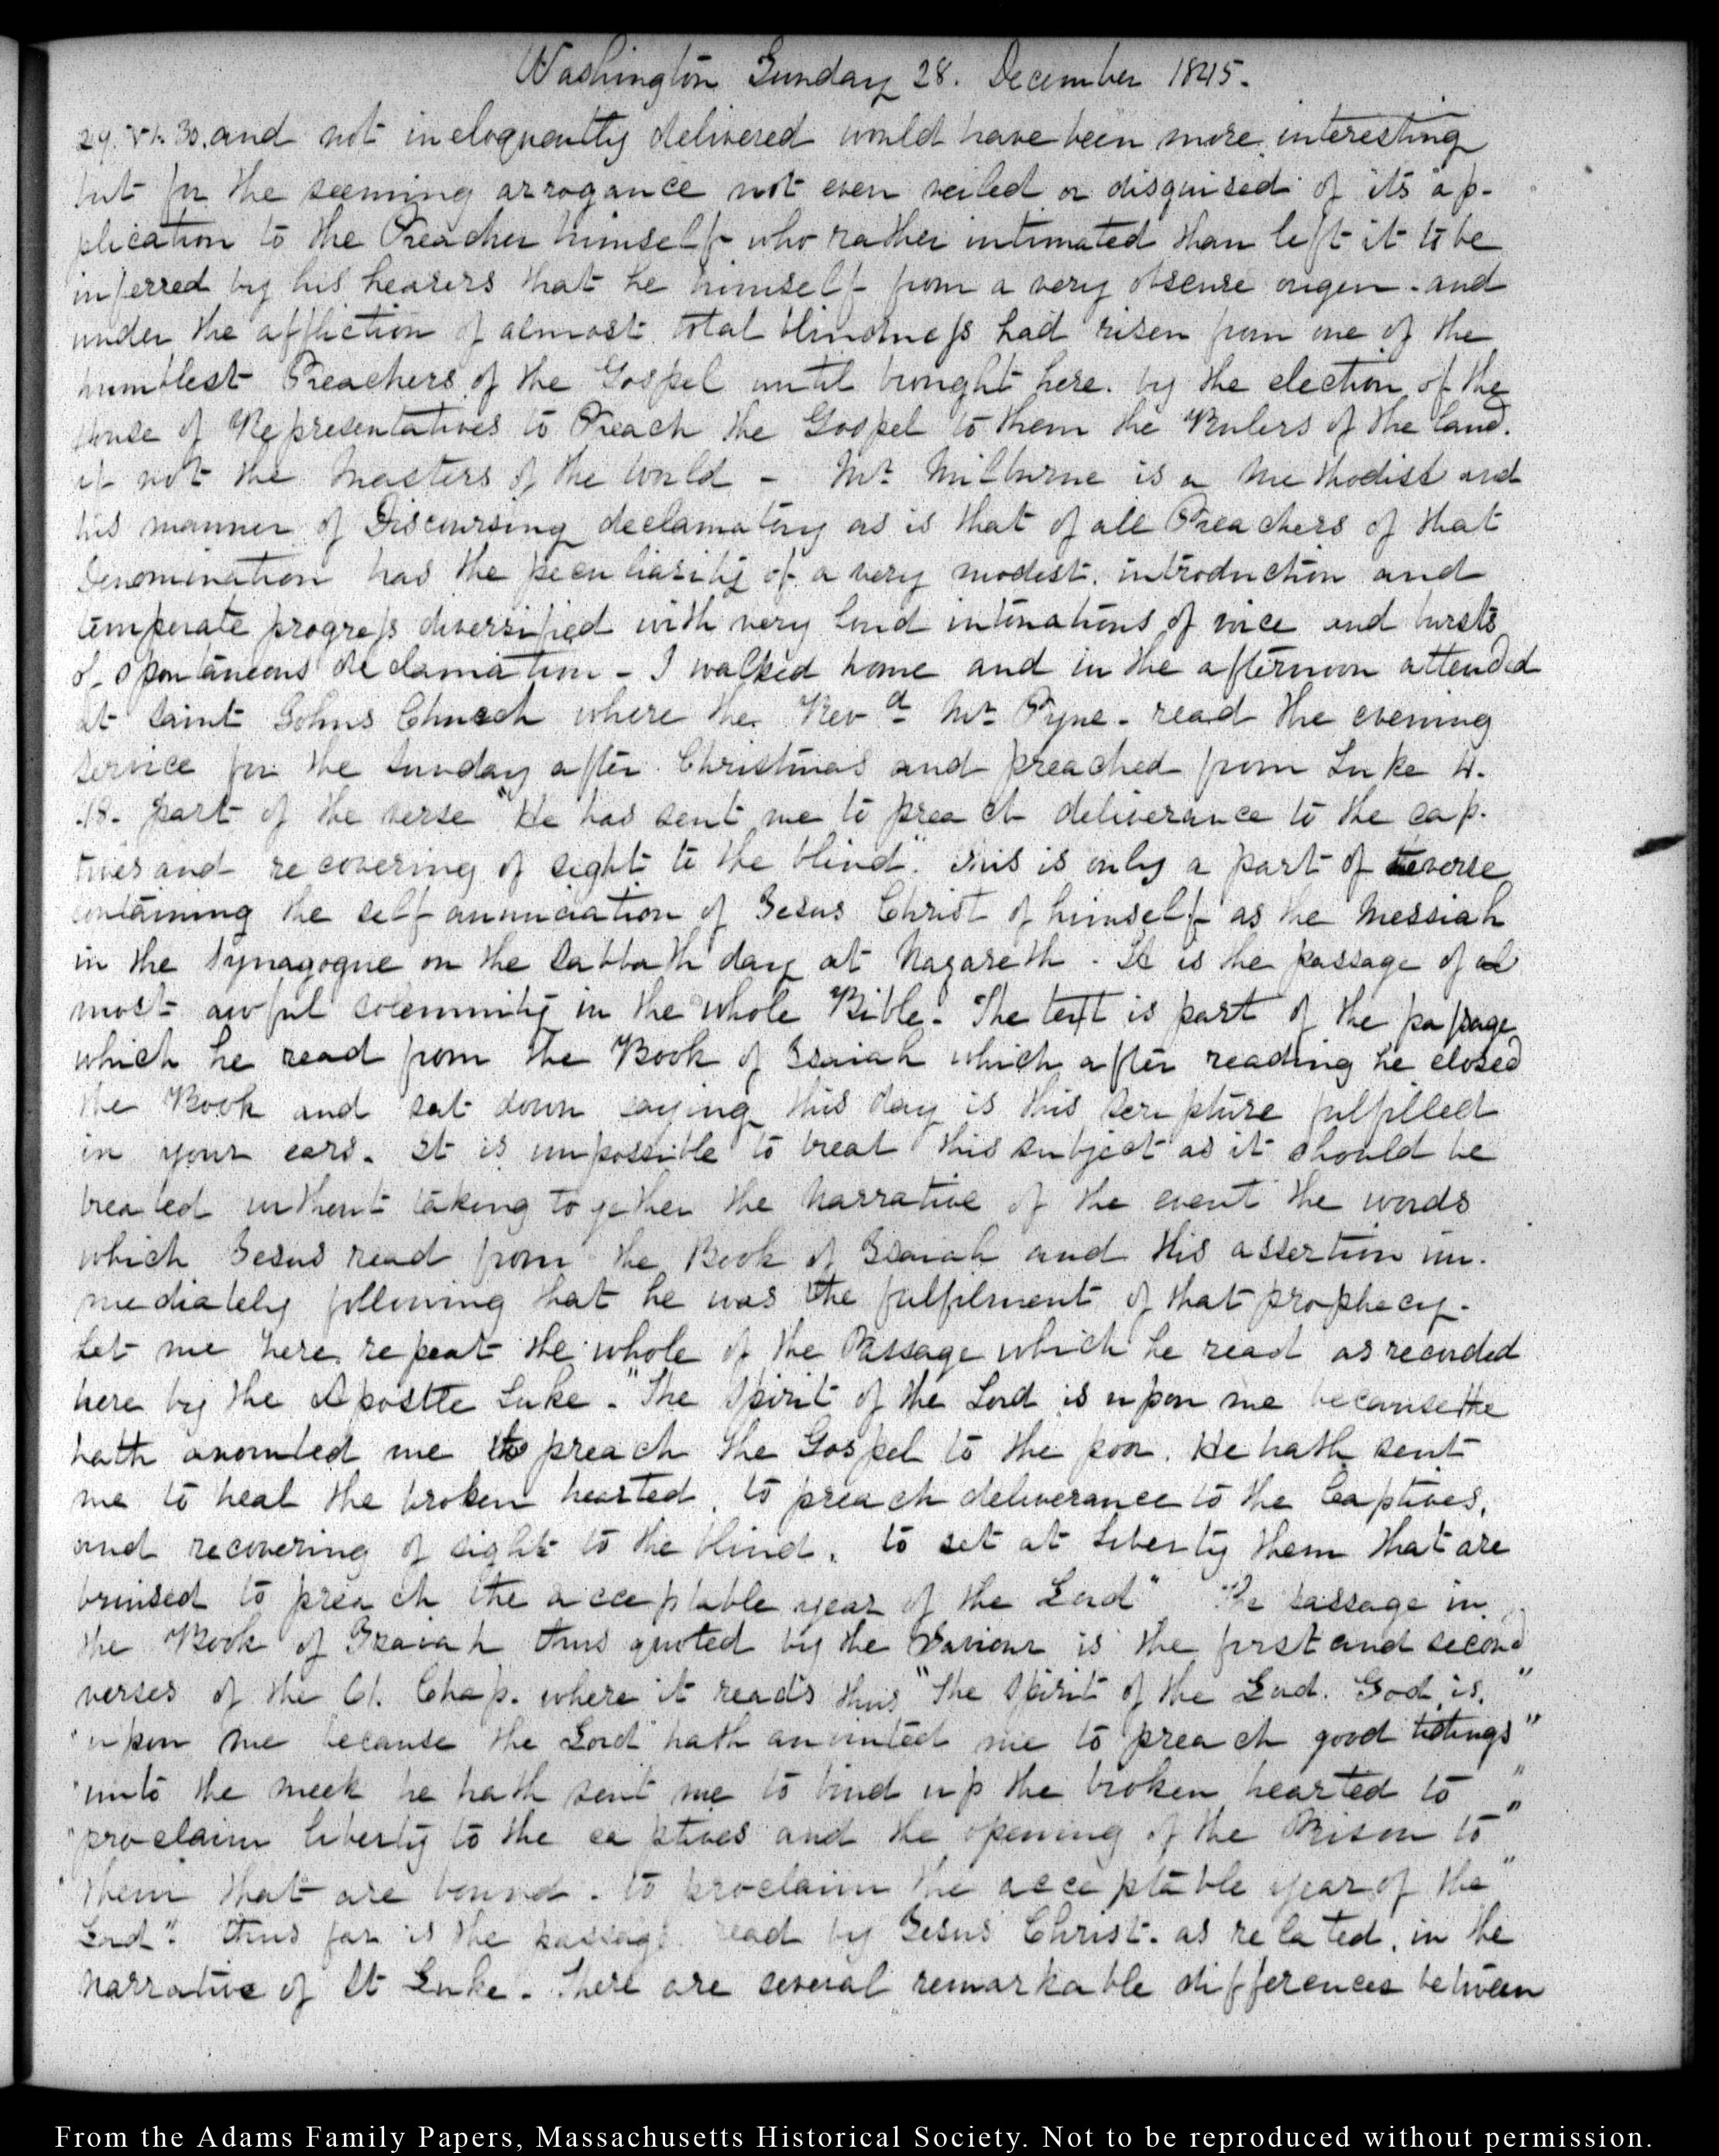 Washington Sunday 28. December 1845.
29. VI. 30. and not ineloquently delivered would have been more interesting
but for the seeming arrogance not even veiled or disguised of its ap-
plication to the Preacher himself who rather intimated than left it to be
inferred by his hearers that he himself from a very obscure origen - and
under the affliction of almost total blindness had risen from one of the
humblest Preachers of the Gospel until brought here. by the election of the
House of Representatives to Preach the Gospel to them the Rulers of the land.
if not the Masters of the World - Mr. Milburne is a Methodist and
his manner of Discoursing declamatory as is that of all Preachers of that
Denomination has the peculiarity of a very modest. introduction and
temperate progress diversified with very loud intonations of voice and bursts
of spontaneous declamation - I walked home and in the afternoon attended
at Saint Johns Church where the Revd. Mr. Pyne - read the evening
service for the Sunday after Christmas and preached from Luke 4.
.18. part of the verse "He has sent me to preach deliverance to the cap-
tives and recovering of sight to the blind". This is only a part of verse
containing the self annunciation of Jesus Christ of himself as the Messiah
in the Synagogue on the Sabbath day at Nazareth - It is the passage of
most awful solemnity in the whole Bible - The text is part of the passage
which he read from the Book of Isaiah which after reading he closed
the Book and sat down saying this day is this scripture fulfilled
in your ears. It is impossible to treat this subject as it should be
treated without taking together the Narrative of the event the words
which Jesus read from the Book of Isaiah and this assertion im-
mediately following that he was the fulfilment of that prophecy -
Let me here repeat the whole of the Passage which he read as recorded
here by the Apostle Luke - "The Spirit of the Lord is upon me because He
hath anointed me to preach the Gospel to the poor. He hath sent
me to heal the broken hearted, to preach deliverance to the Captives,
and recovering of sight to the blind, to set at Liberty them that are
bruised to preach the acceptable year of the Lord" The passage in
the Book of Isaiah thus quoted by the Saviour is the first and second
verses of the 61. Chap. where it reads thus "The Spirit of the Lord. God is."
"upon me because the Lord hath anointed me to preach good tidings"
"unto the meek he hath sent me to bind up the broken hearted to"
"proclaim liberty to the captives and the opening of the Prison to"
"them that are bound - to proclaim the acceptable year of the"
Lord". Thus far is the passage read by Jesus Christ - as related, in the
Narrative of St Luke - There are several remarkable differences between
From the Adams Family Papers, Massachusetts Historical Society. Not to be reproduced without permission.